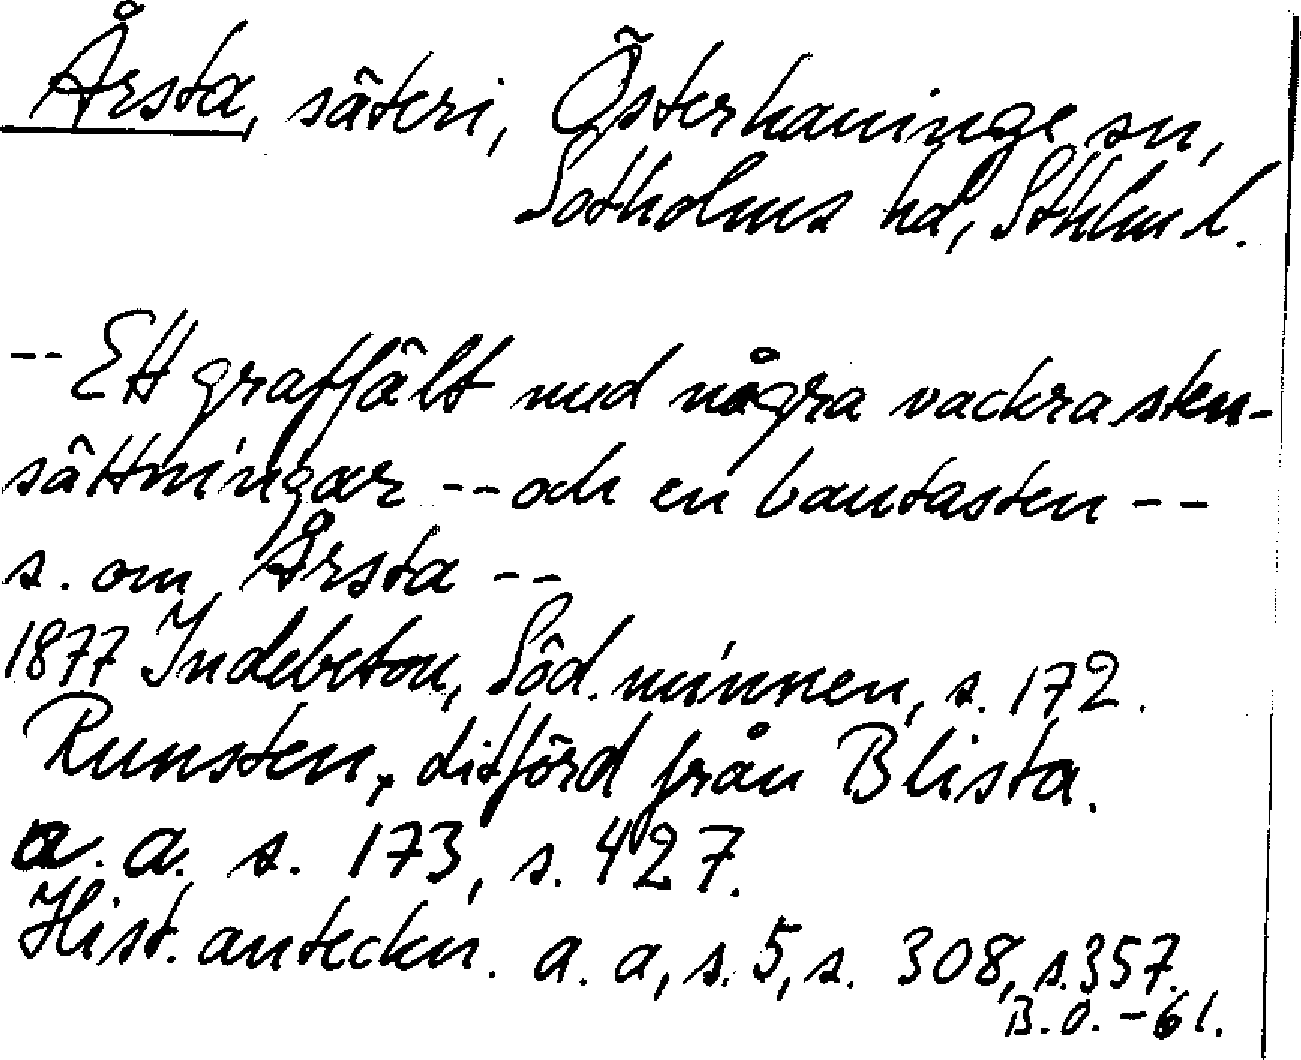 Årsta, säteri, Österhaninge sn,
Sotholms hd, Sthlm l.
-- Ett graffält med några vackra sten-
sättningar -- och en bautasten --
s. om Årsta --
1877 Indebetou, Söd. minnen, s. 172.
Runsten, ditförd från Blista.
a. a. s. 173, s. 427.
Hist. anteckn. a. a, s. 5, s. 308, s. 357.
B.O. - 61.